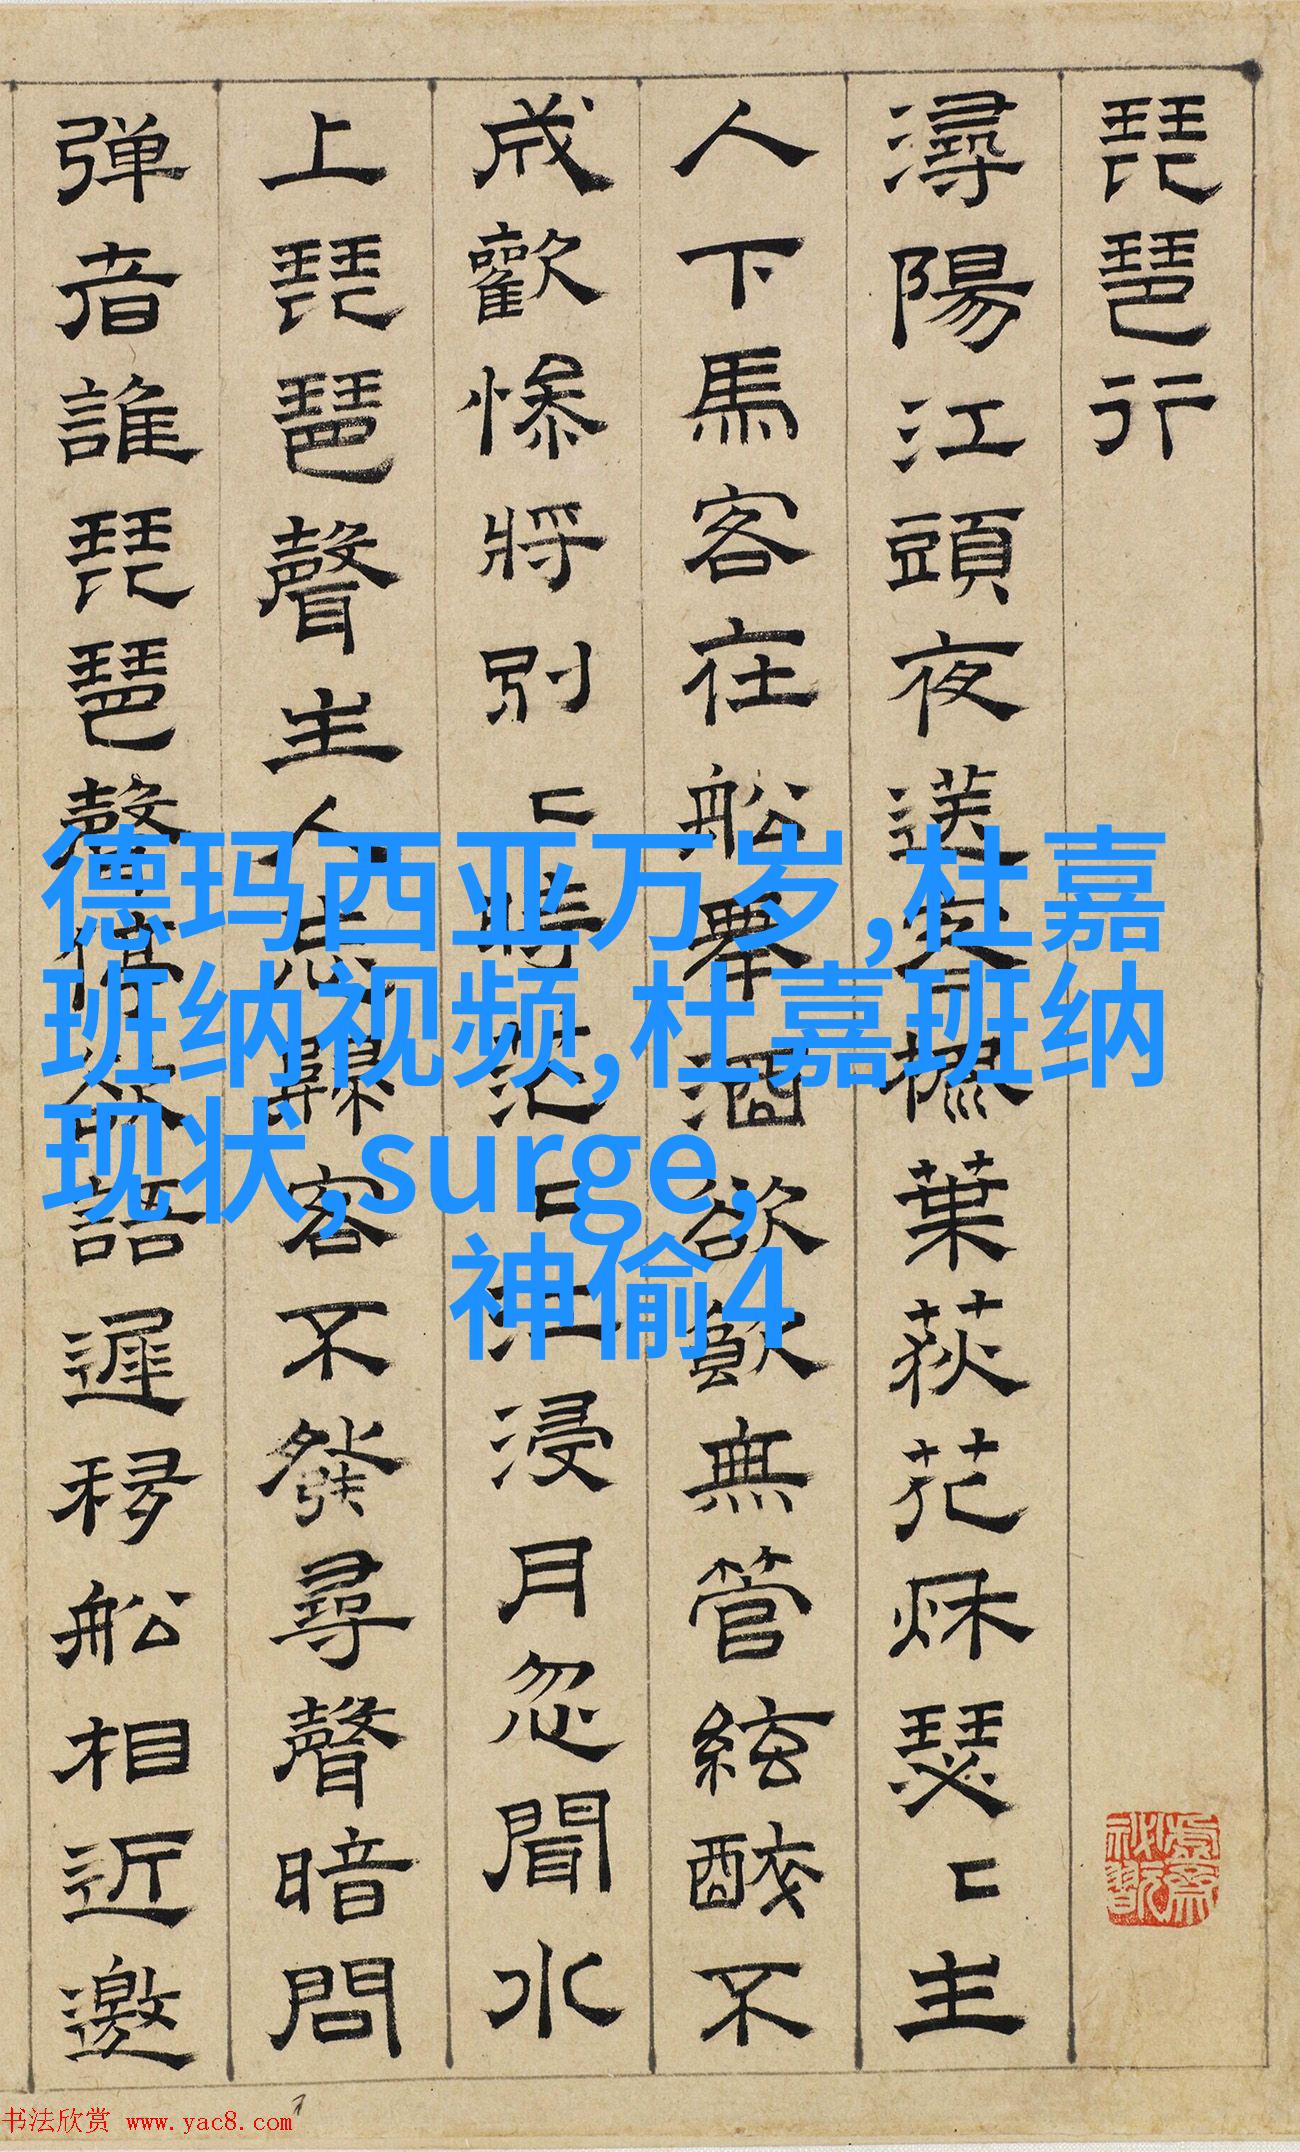 琵琶行
潯陽江頭夜送客楓葉荻花秌瑟〻主
人下馬客在船舉酒欲飲無管絃醉不
成歡慘將別〻時茫〻江浸月忽聞水
上琵琶聲主人忘歸客不發尋聲暗問
弹者誰琵琶聲停欲語遲移船相近邀
德玛西亚万岁,杜嘉
班纳视频,杜嘉班纳
现状,surge,
神偷4
书法欣赏 www.yac8.com